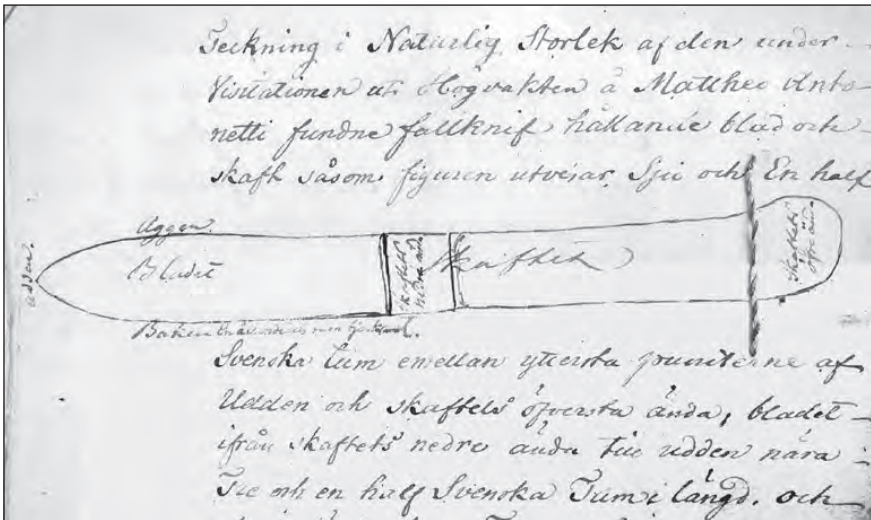 Teckning i Naturlig Storlek af den under
Visitationen uti Högvakten å Mattheo Anto-
netti fundne fällknif hållande blad och
skaft såsom figuren utvisar Sju och En half
Äggen.
udden.
Bladet
skaftets nedre änd.
Skaftet
Skaftets öfre änd.
Baken
Svenska tum emellan yttersta puncterne af
Udden och skaftets öfversta ända, bladet
ifrån skaftets nedre ända till udden nära
Tre och en half Svenska Tum i längd. och